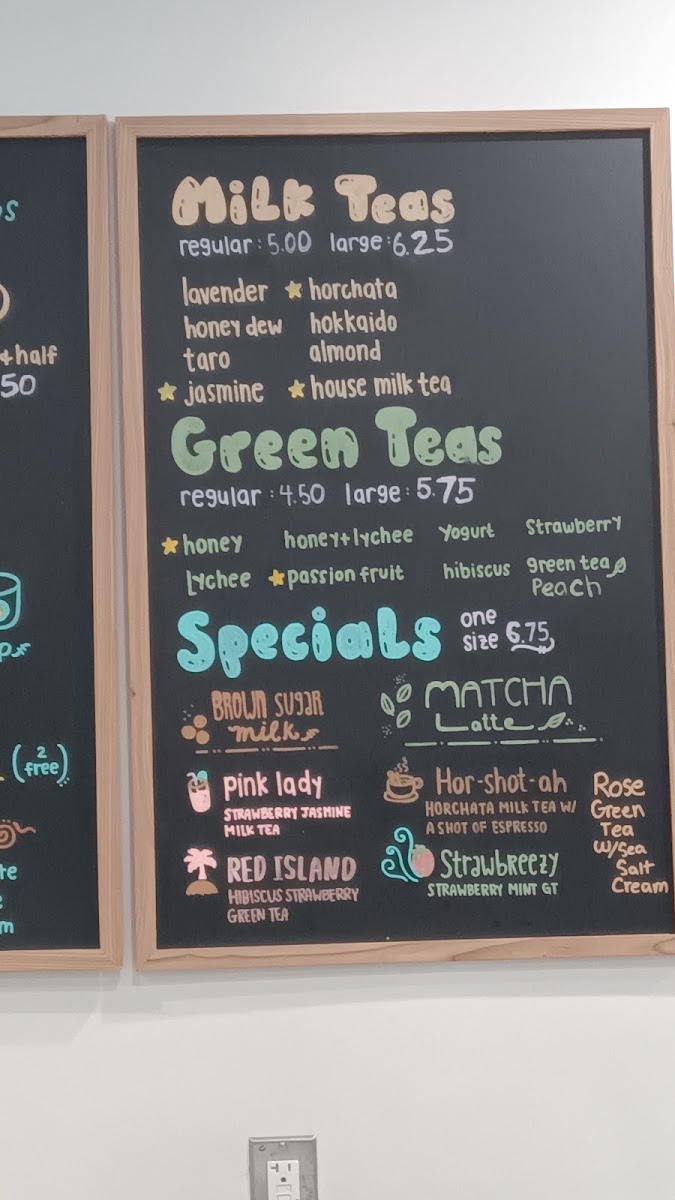 s
+half
50
p
(2 free)
te
m
Milk Teas
regular: 5.00 large: 6.25
lavender ★ horchata
honey dew hokkaido
taro almond
★ jasmine ★ house milk tea
Green Teas
regular: 4.50 large: 5.75
★ honey honey+lychee Yogurt Strawberry
Lychee ★ passion fruit hibiscus green tea
Peach
Specials one size 6.75
BROWN SUGAR
milk
MATCHA
Latte
pink lady
STRAWBERRY JASMINE
MILK TEA
Hor-shot-ah
HORCHATA MILK TEA W/
A SHOT OF ESPRESSO
RED ISLAND
HIBISCUS STRAWBERRY
GREEN TEA
Strawbreezy
STRAWBERRY MINT GT
Rose
Green
Tea
W/Sea
Salt
Cream